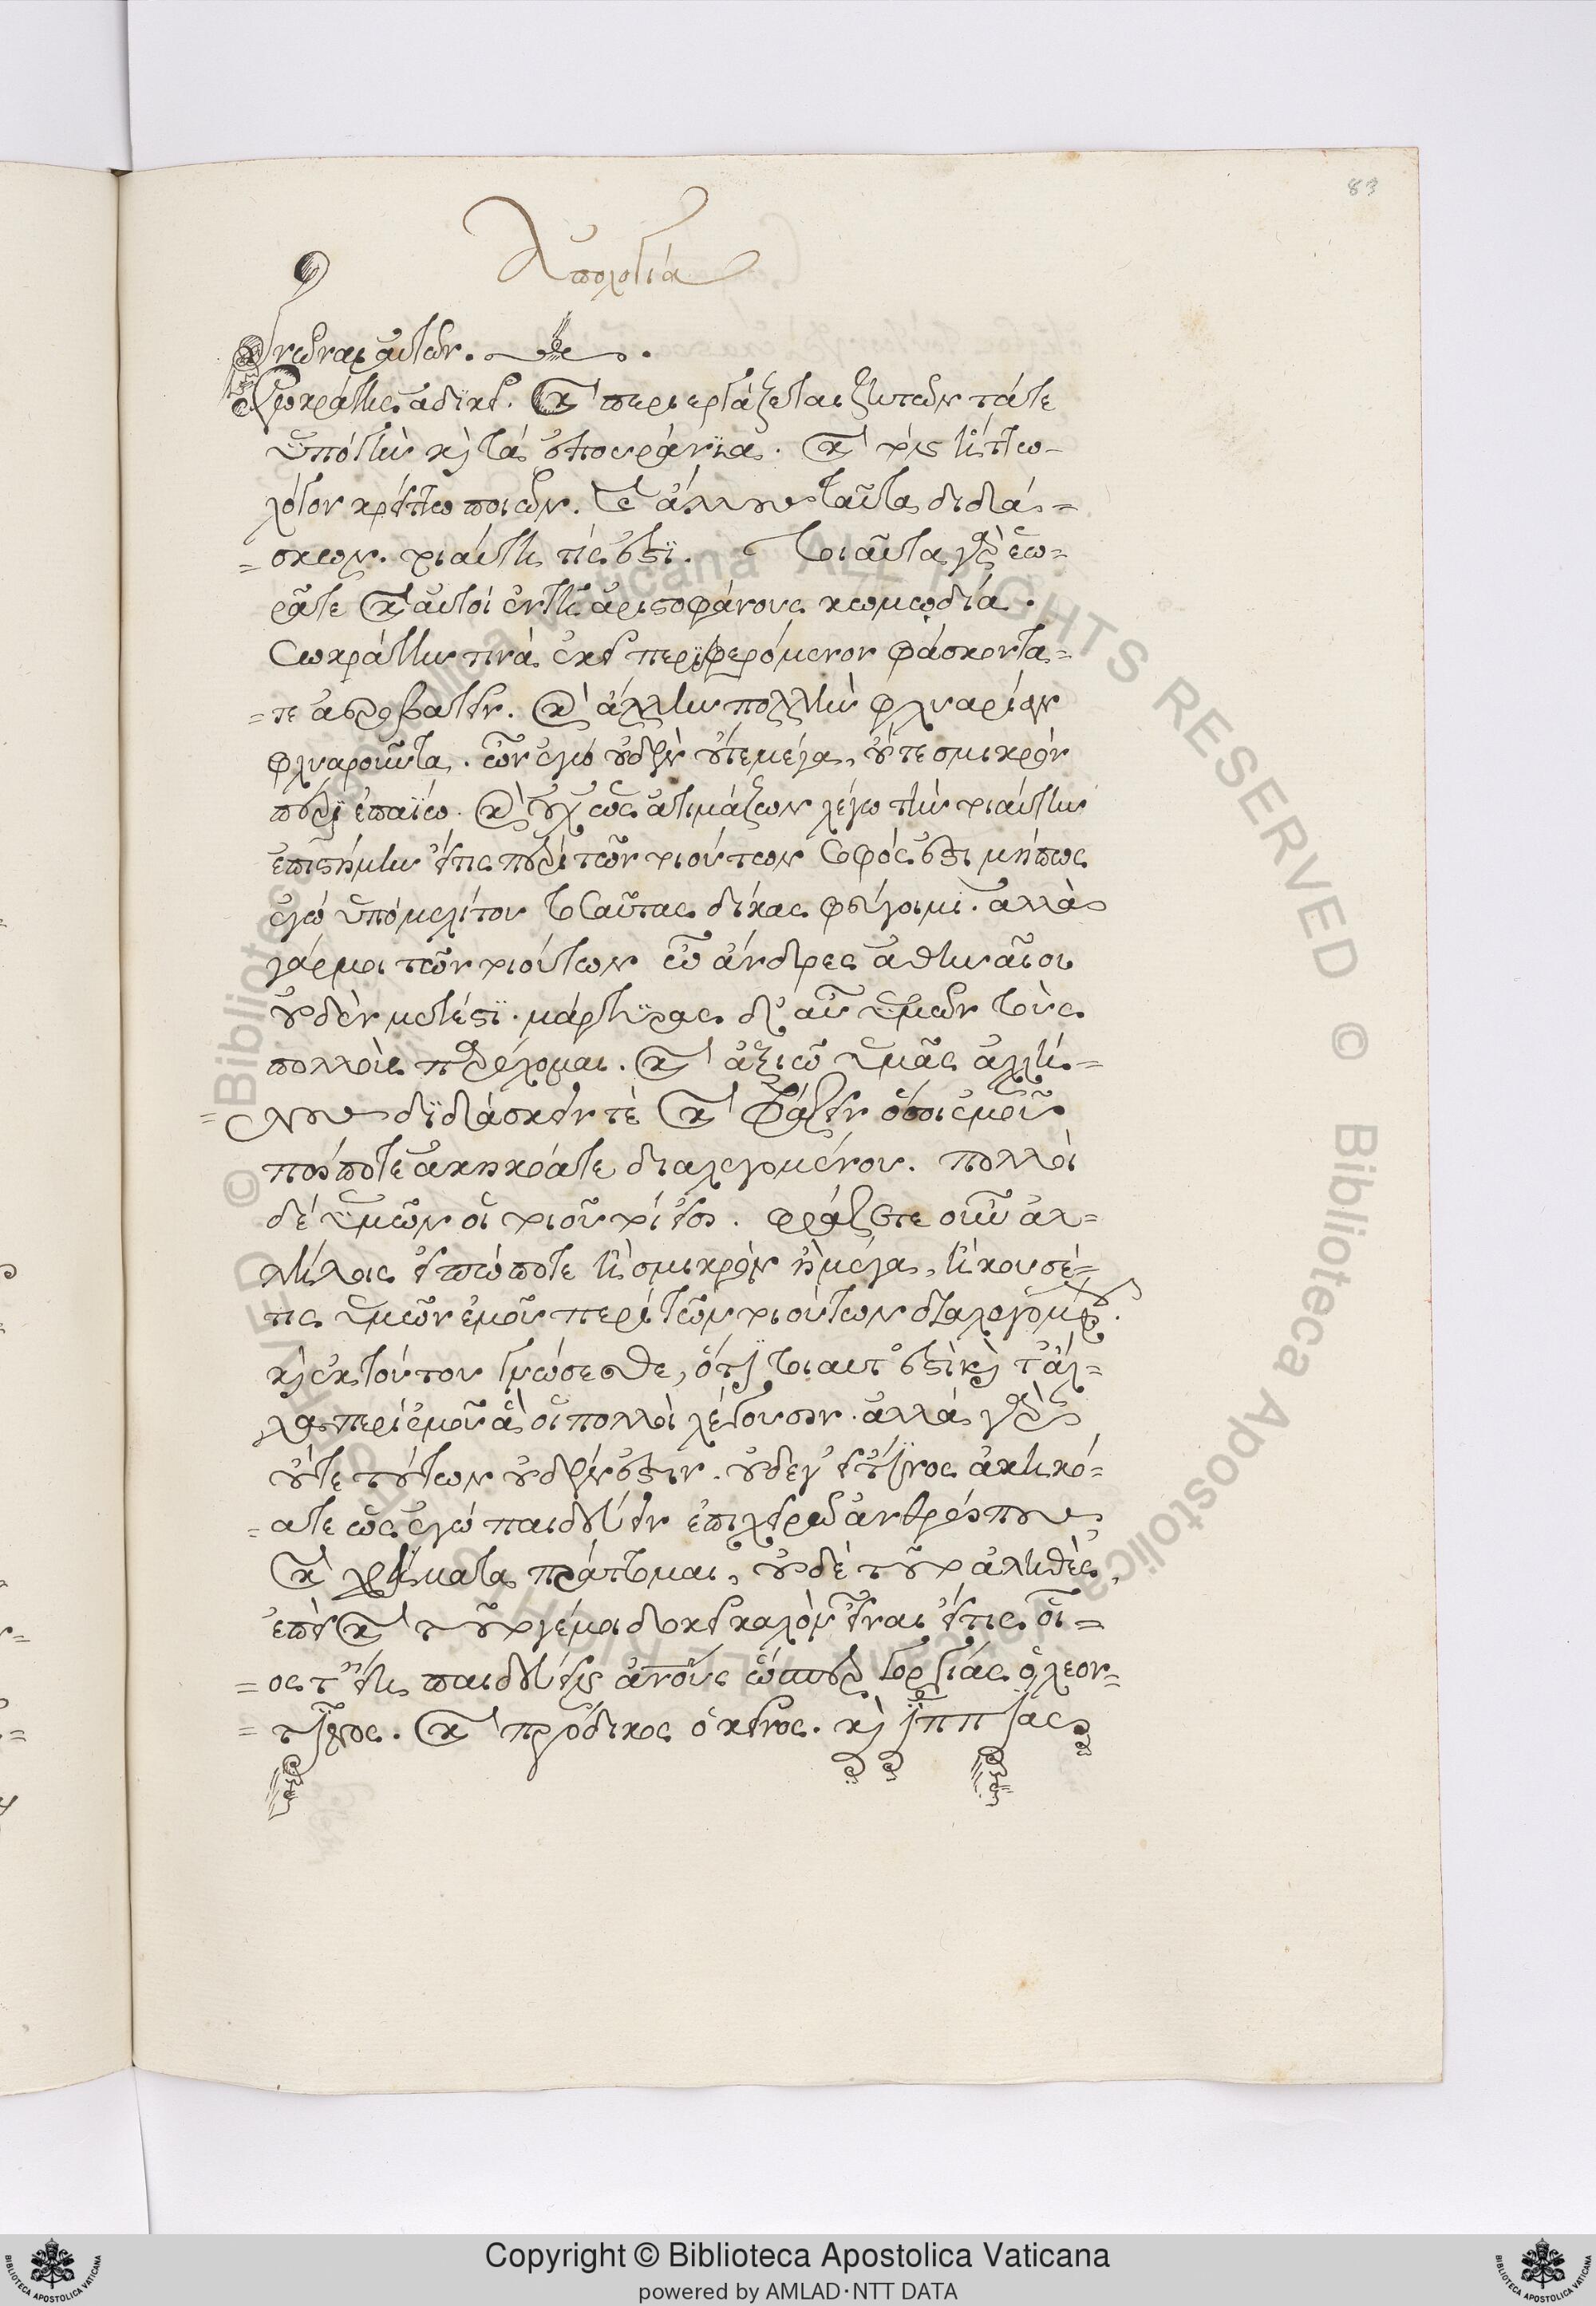 83
Ἀπολογία
γνῶναι αὐτῶν.
Σωκράτης ἀδικεῖ. καὶ περιεργάζεται ζητῶν τά τε
ὑπὸ γῆν καὶ τὰ ἐπουράνια. καὶ τὸν ἥττω
λόγον κρείττω ποιῶν. καὶ ἄλλους ταῦτα διδά=
=σκων. τοιαύτη τίς ἐστι. τοιαῦτα γὰρ ἑω=
ρᾶτε καὶ αὐτοὶ ἐν τῇ ἀριστοφάνους κωμωδία.
Σωκράτην τινὰ ἐκεῖ περιφερόμενον φάσκοντα=
=τε ἀεροβατεῖν. καὶ ἄλλην πολλὴν φλυαρίαν
φλυαροῦντα. ὧν ἐγὼ οὐδὲν οὔτε μέγα, οὔτε σμικρὸν
πέρι ἐπαΐω. καὶ οὐχ ὡς ἀτιμάζων λέγω τὴν τοιαύτην
ἐπιστήμην εἴ τις περὶ τῶν τοιούτων σοφός ἐστι μήπως
ἐγὼ ὑπὸ μελίτου τοσαύτας δίκας φεύγοιμι. ἀλλὰ
γάρ μοι τῶν τοιούτων ὦ ἄνδρες ἀθηναῖοι
οὐδὲν μέτεστι. μάρτυρας δ' αὖ ὑμῶν τοὺς
πολλοὺς παρέχομαι. καὶ ἀξιῶ ὑμᾶς ἀλλή=
=λους διδάσκειν τὲ καὶ φράζειν ὅσοι ἐμοῦ
πώποτε ἀκηκόατε διαλεγομένου. πολλοὶ
δὲ ὑμῶν οἱ τοιοῦτοί εἰσι. φράζετε οὖν ἀλ=
λήλοις εἰ πώποτε ἢ σμικρὸν ἢ μέγα, ἤκουσέ=
τις ὑμῶν ἐμοῦ περὶ τῶν τοιούτων διαλεγομένου.
καὶ ἐκ τούτου γνώσεσθε, ὅτι τοιαῦτ' ἐστὶ καὶ τἆλ=
λα περὶ ἐμοῦ ἃ οἱ πολλοὶ λέγουσιν. ἀλλὰ γὰρ
οὔτε τούτων οὐδέν ἐστιν. οὐδέ γ' εἴ τινος ἀκηκό=
=ατε ὡς ἐγὼ παιδεύειν ἐπιχειρῶ ἀνθρώπους
καὶ χρήματα πράττομαι, οὐδὲ τοῦτο ἀληθὲς,
ἐπεὶ καὶ τοῦτο γέ μοι δοκεῖ καλὸν εἶναι εἴ τις οἷ=
=ος τ' εἴη παιδεύειν ἀνους ὥσπερ Γοργίας ὁ λεον=
=τῖνος. καὶ πρόδικος ὁ κεῖος. καὶ ἱππίας
© Biblioteca Apostolica Vaticana ALL RIGHTS RESERVED
© Biblioteca Apostolica Vaticana ALL RIGHTS RESERVED
Copyright © Biblioteca Apostolica Vaticana
powered by AMLAD·NTT DATA
BIBLIOTECA APOSTOLICA VATICANA
BIBLIOTECA APOSTOLICA VATICANA